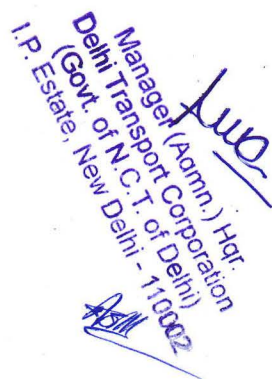 Manager (Admn.) Hqr.
Delhi Transport Corporation
(Govt. of N.C.T. of Delhi)
I.P. Estate, New Delhi - 110002